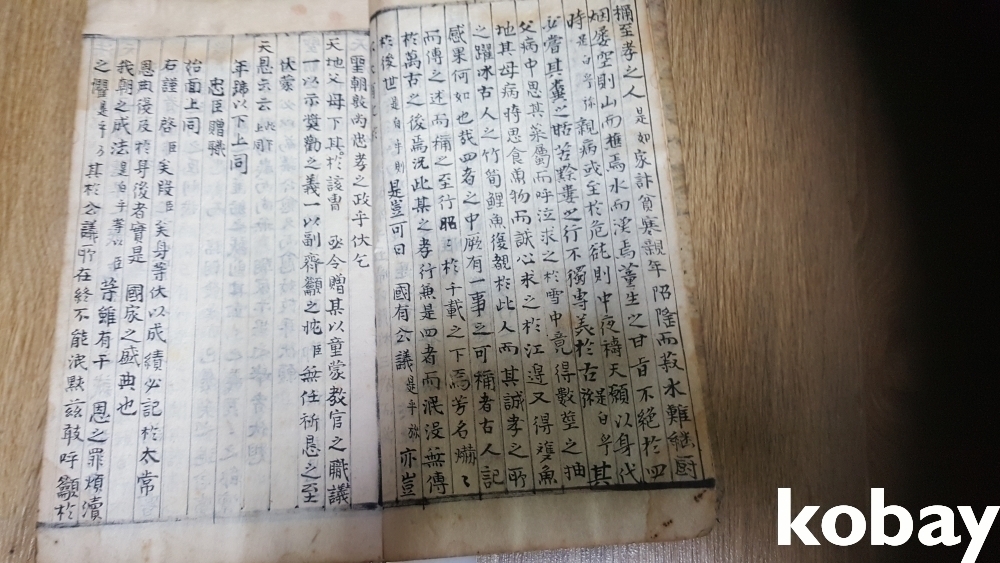 稱至孝之人 是如家計貧寒親年 陷陰而菽水難繼厨
烟屢空則山而樵焉水而漁焉董生之甘旨不絶於四
時 是白乎㫆 親病或至於危砘則中夜禱天願以身代
必嘗其糞之甜苦黔婁之行不獨專美於古 是白乎 其
父病中思其 而呼泣求之於雪中竟得數莖之抽
地其母病時思食 物而誠心求之於江邊又得雙魚
之躍氷古人之竹筍鯉魚復覩於此人而其誠孝之所
感果何如也哉四者之中厥有一事之可稱者古人記
而傳之述而稱之至行昭 於千載之下焉芳名爀〻
於萬古之後焉况此某之孝行兼是四者而泯没無傳
於後世 是白乎則 是豈可曰 國有公議 是乎㫆 亦豈
聖朝敦尚忠孝之政乎伏乞
天地父母下其於該曹 亟令贈其以童蒙教官之職議
一以示奬勸之義一以副齊籲之忱臣無任祈恳之至
伏蒙
天恩示云 上同
年歸以下上同
忠臣贈職
治面上同
石謹 啓臣矣段臣矣身等伏以成績必記於太常
恩典後及於身後者實是 國家之盛典也
我朝之成法 是白乎等以 臣 等雖有干 恩之罪煩瀆
之懼 是乎乃 其於公議所在終不能泯默兹敢呼籲於
kobay